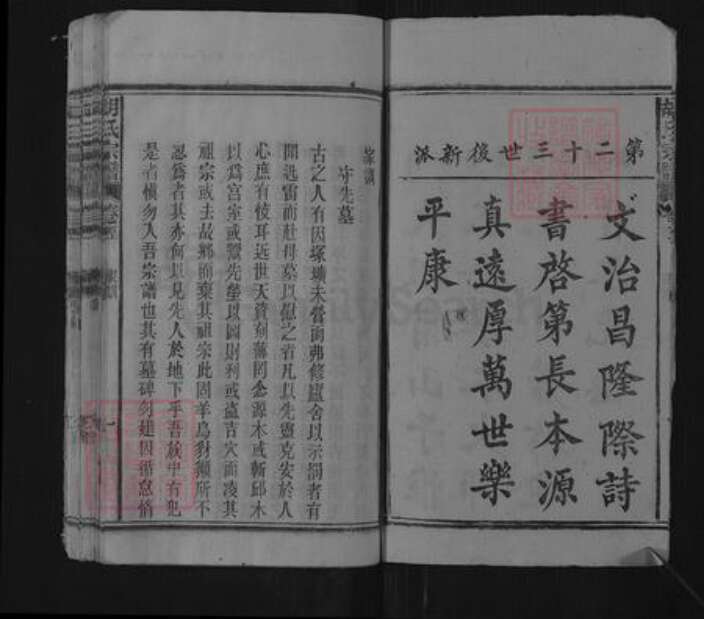 第二十三世後新派
文治昌隆際詩
書啓第長本源
真遠厚萬世樂
平康
家訓
守先墓
古之人有因塚壙未營而弗修廬舍以示罰者有
聞迅雷而赴母墓以慰之者凡以先靈克安於人
心庶有恔耳近世天資刻薄罔念源木或斬邱木
以為宮室或鬻先塋以圖財利或盜吉穴而凌其
祖宗或去故鄉而棄其祖宗此固羊烏豺獺所不
忍為者其亦何以見先人於地下乎吾族中有犯
是者慎勿入吾宗譜也其有墓碑勿建因循怠惰
胡氏宗譜
家訓
一